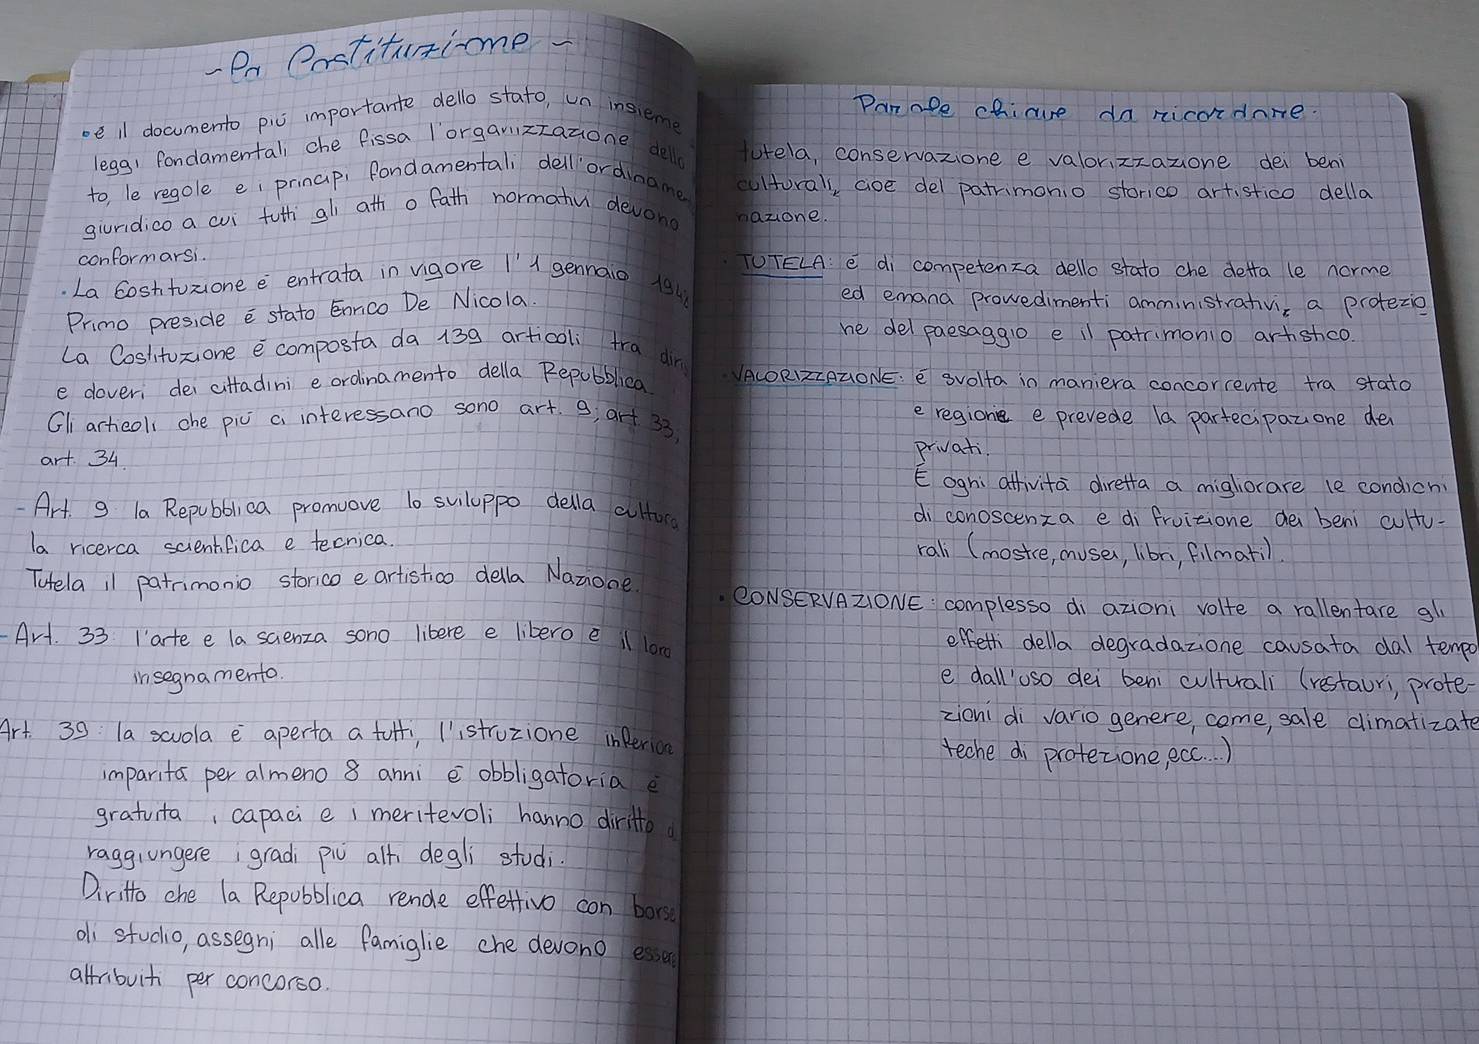 - La Costituzione -
• è il documento più importante dello stato, un insieme
leggi fondamentali che fissa l'organizzazione dello
to, le regole e i principi fondamentali dell'ordiname
giuridico a cui tutti gli atti o fatti normativi devono
conformarsi.
. La Costituzione è entrata in vigore l'1 gennaio 1948
Primo preside è stato Enrico De Nicola.
La Costituzione è composta da 139 articoli tra diri
e doveri dei cittadini e ordinamento della Repubblica
Gli articoli che più ci interessano sono art. 9, art 33,
art. 34.
- Art. 9 la Repubblica promuove lo sviluppo della cultura
la ricerca scientifica e tecnica.
Tutela il patrimonio storico e artistico della Nazione.
- Art. 33: l'arte e la scienza sono libere e libero è il loro
insegnamento.
Art. 39: la scuola è aperta a tutti, l'istruzione inferiore
imparità per almeno 8 anni è obbligatoria e
gratuita, i capaci e i meritevoli hanno diritto d
raggiungere i gradi più alti degli studi.
Diritto che la Repubblica rende effettivo con borse
di studio, assegni alle famiglie che devono essere
attribuiti per concorso.
Parole chiave da ricordare:
tutela, conservazione e valorizzazione dei beni
culturali, cioè del patrimonio storico artistico della
nazione.
. TUTELA: è di competenza dello stato che detta le norme
ed emana provvedimenti amministrativi, a protezio
ne del paesaggio e il patrimonio artistico.
. VALORIZZAZIONE: è svolta in maniera concorrente tra stato
e regione e prevede la partecipazione dei
privati.
È ogni attività diretta a migliorare le condicni
di conoscenza e di fruizione dei beni cultu-
rali (mostre, musei, libri, filmati).
. CONSERVAZIONE: complesso di azioni volte a rallentare gli
effetti della degradazione causata dal tempo
e dall'uso dei beni culturali (restauri, prote-
zioni di vario genere, come, sale climatizate
teche di protezione, ecc...)